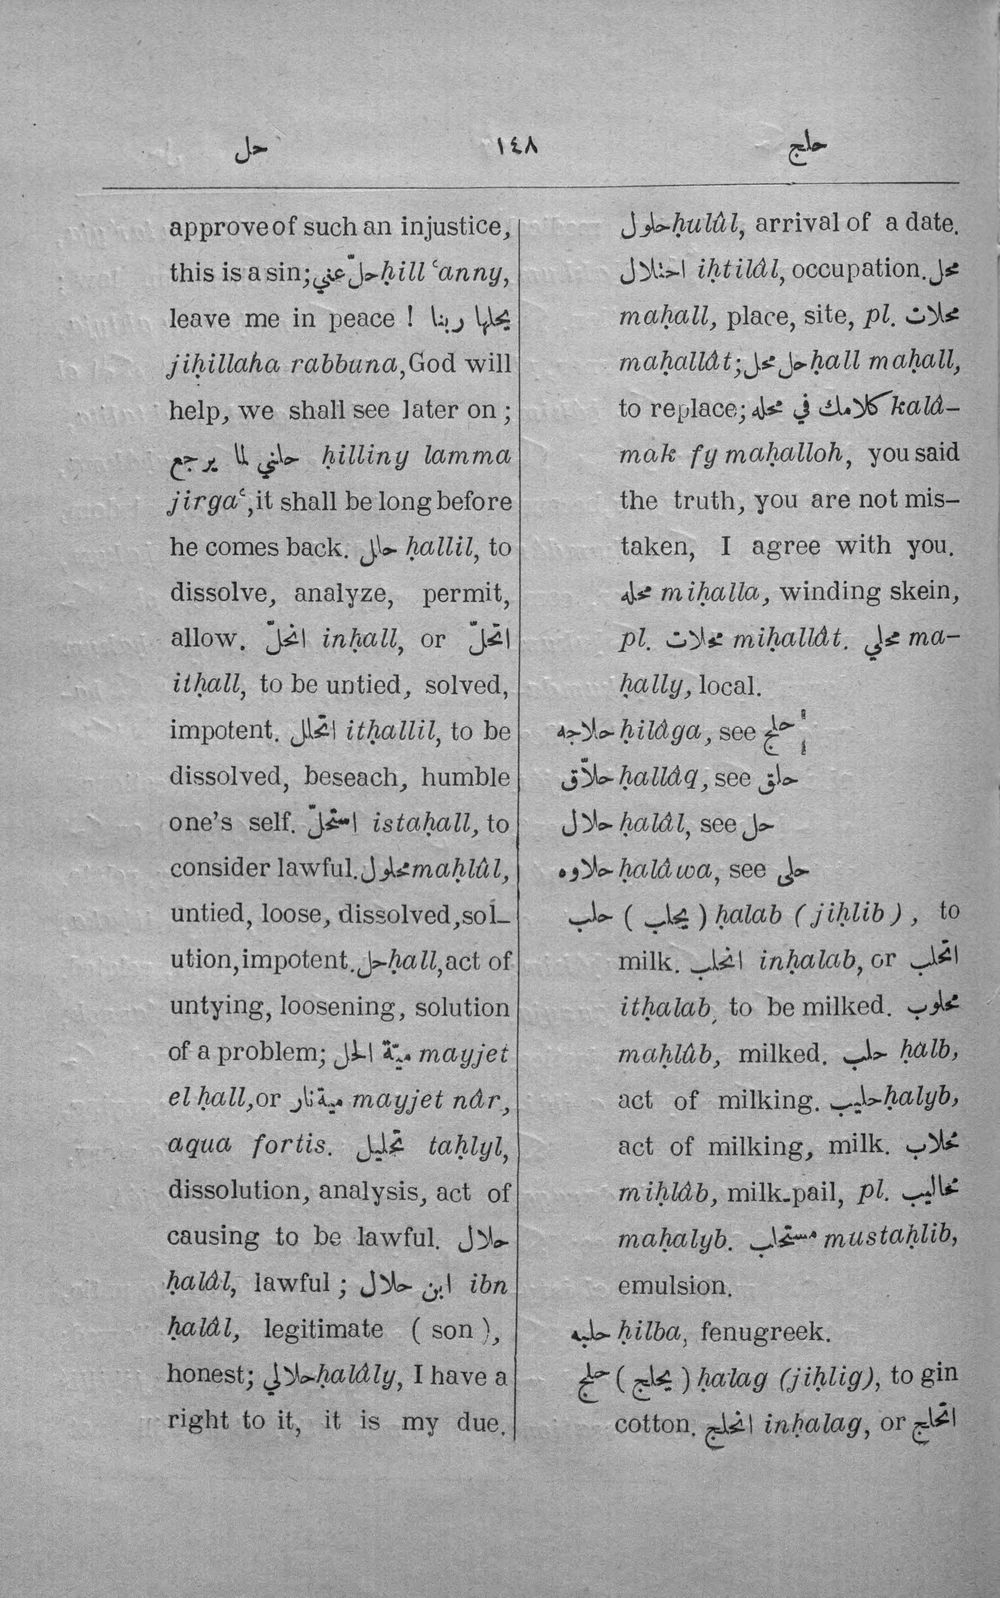 حل ١٤٨ حلج
approve of such an injustice,
this is a sin; حلّ عني ḥill ‘anny,
leave me in peace ! يحلها ربنا
jiḥillaha rabbuna, God will
help, we shall see later on ;
حلني لما يرجع ḥilliny lamma
jirga‘, it shall be long before
he comes back. حلل ḥallil, to
dissolve, analyze, permit,
allow. انحلّ inḥall, or اتحلّ
itḥall, to be untied, solved,
impotent. اتحلل itḥallil, to be
dissolved, beseach, humble
one's self. استحلّ istaḥall, to
consider lawful. محلول maḥlûl,
untied, loose, dissolved, sol-
ution, impotent. حل ḥall, act of
untying, loosening, solution
of a problem; ميّة الحل mayjet
el ḥall, or مية نار mayjet nâr,
aqua fortis. تحليل taḥlyl,
dissolution, analysis, act of
causing to be lawful. حلال
ḥalâl, lawful ; ابن حلال ibn
ḥalâl, legitimate ( son ),
honest; حلالي ḥalâly, I have a
right to it, it is my due.
حلول ḥulûl, arrival of a date.
احتلال iḥtilâl, occupation. محل
maḥall, place, site, pl. محلات
maḥallât; حل محل ḥall maḥall,
to replace; كلامك في محله kalâ-
mak fy maḥalloh, you said
the truth, you are not mis-
taken, I agree with you.
محله miḥalla, winding skein,
pl. محلات miḥallât. محلي ma-
ḥally, local.
حلاجه ḥilâga, see حلج
حلاّق ḥallâq, see حلق
حلال ḥalâl, see حل
حلاوه ḥalâwa, see حلى
حلب ( يحلب ) ḥalab ( jiḥlib ), to
milk. انحلب inḥalab, or اتحلب
itḥalab, to be milked. محلوب
maḥlûb, milked. حلب ḥalb,
act of milking. حليب ḥalyb,
act of milking, milk. محلاب
miḥlâb, milk-pail, pl. محاليب
maḥalyb. مستحلب mustaḥlib,
emulsion.
حلبه ḥilba, fenugreek.
حلج ( يحلج ) ḥalag (jiḥlig), to gin
cotton. انحلج inḥalag, or اتحلج